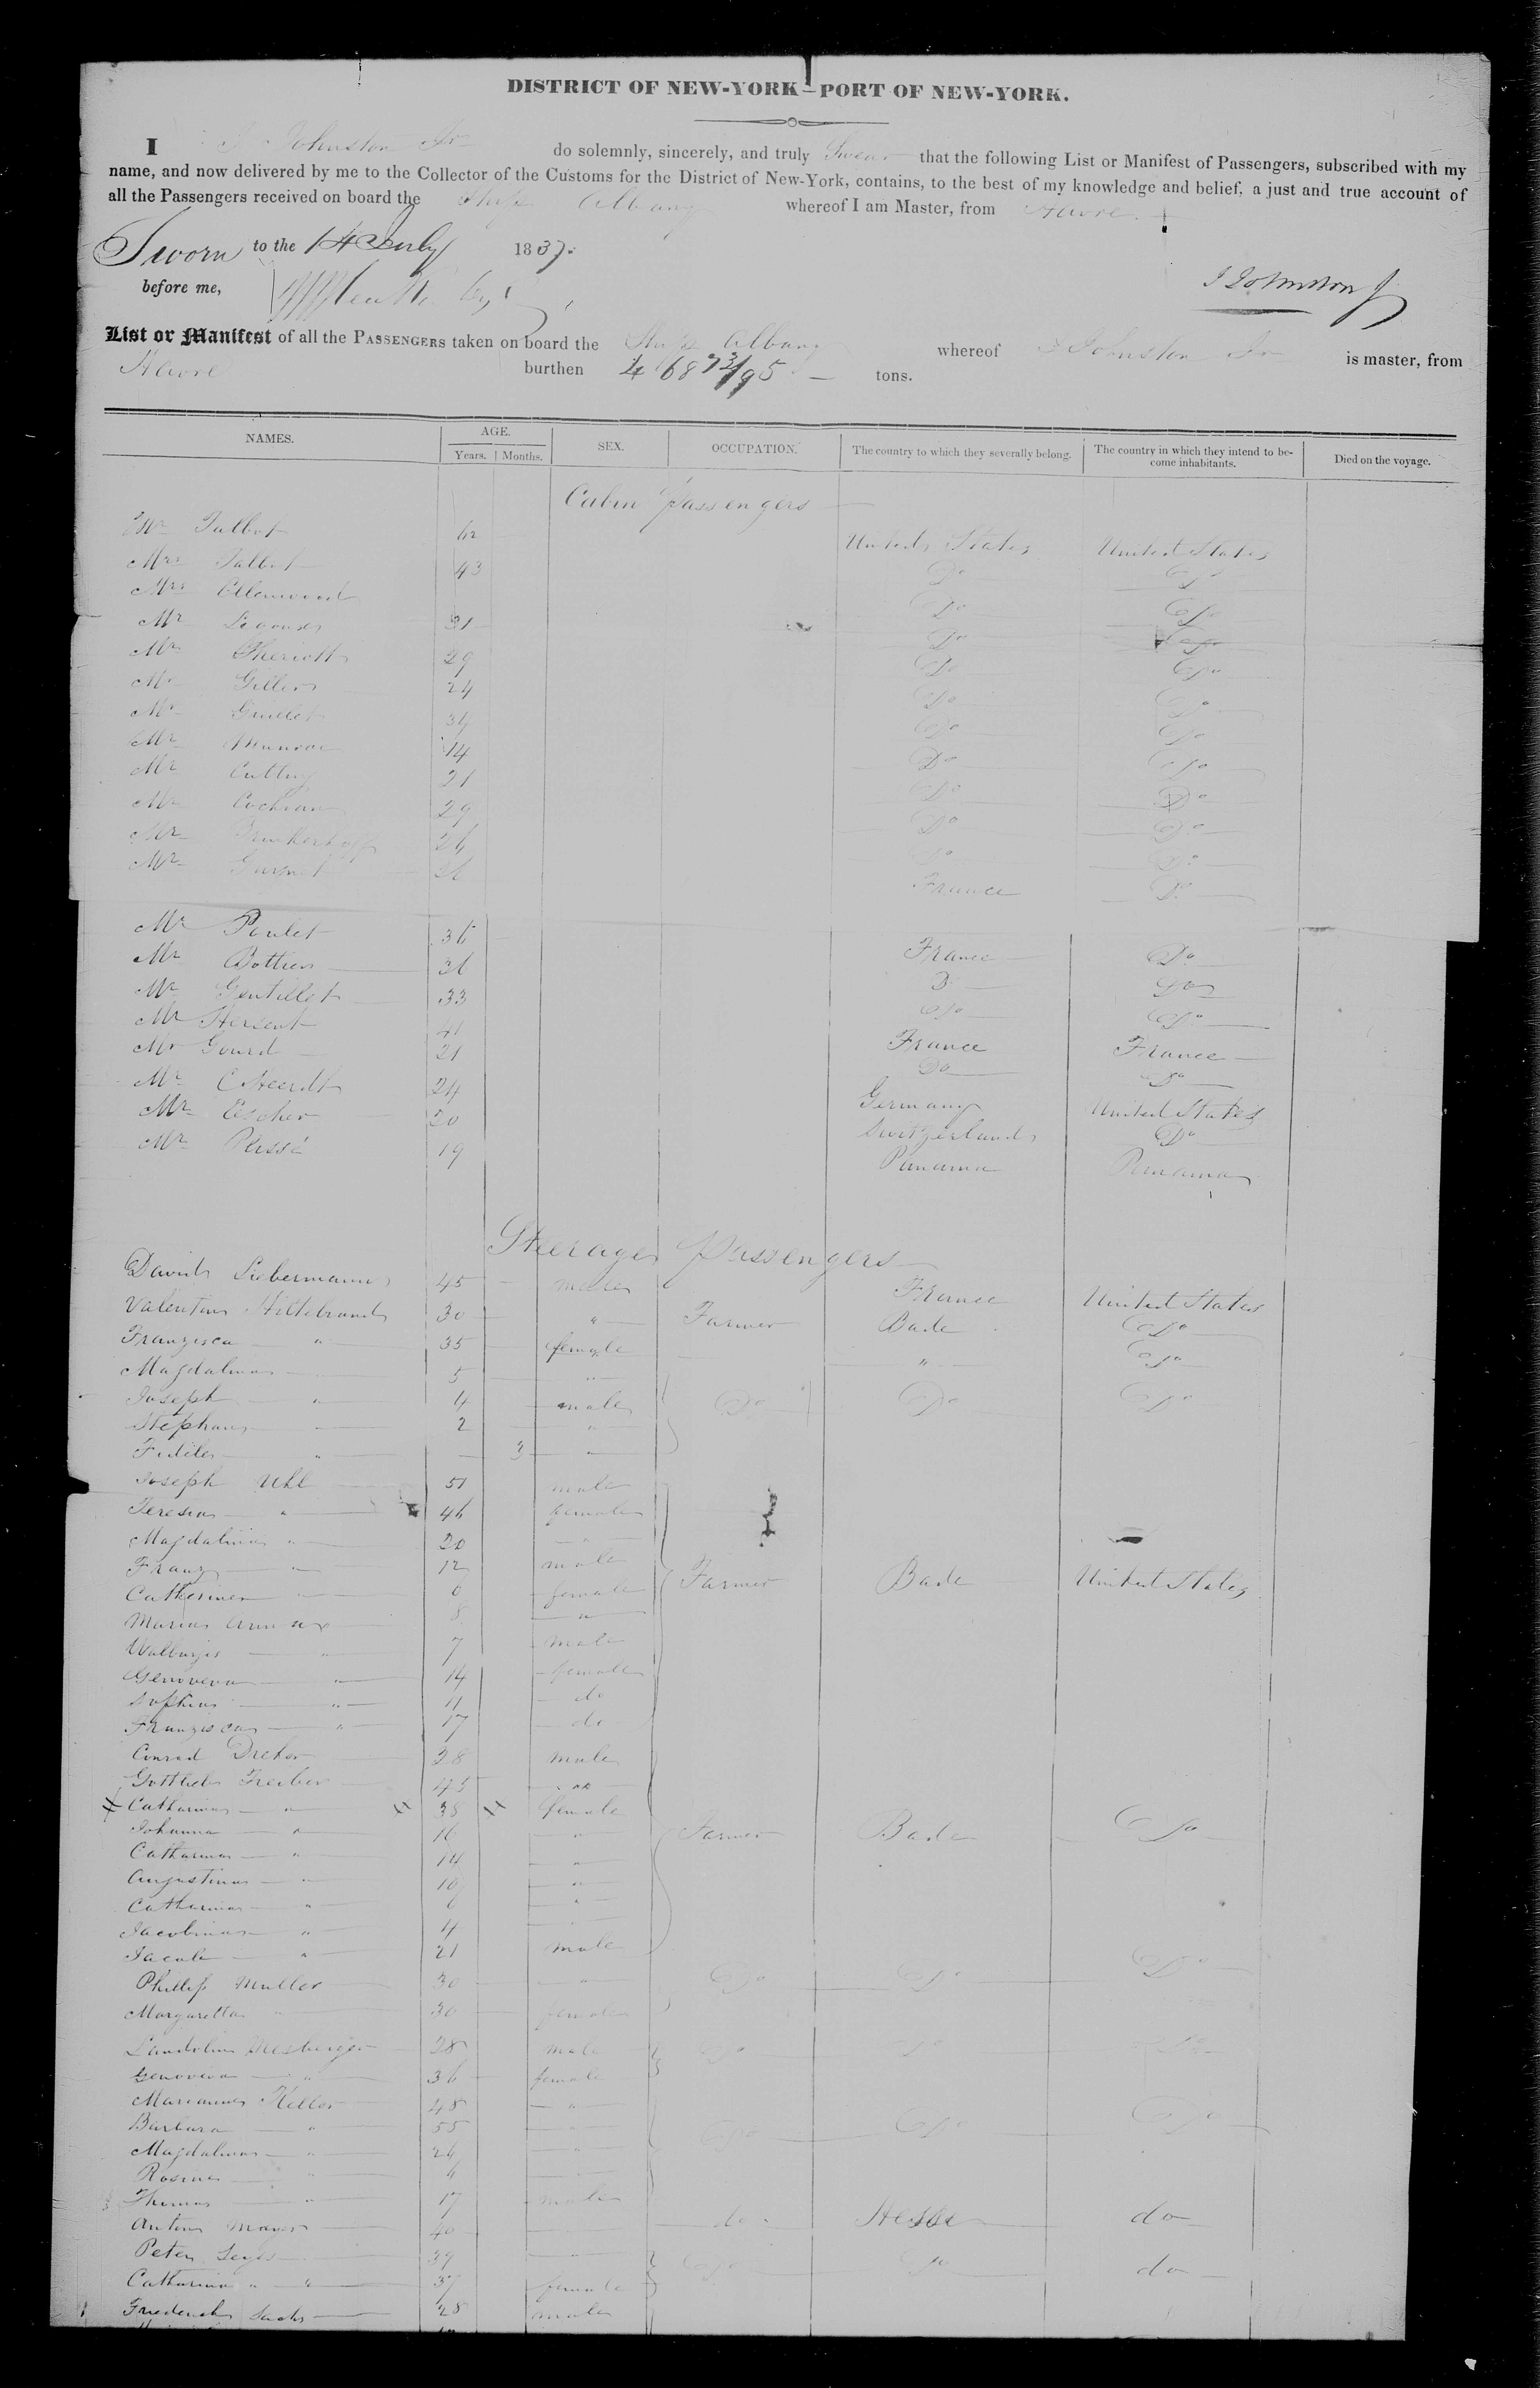 DISTRICT OF NEW-YORK—PORT OF NEW-YORK.
I J Johnston Jr do solemnly, sincerely, and truly Swear that the following List or Manifest of Passengers, subscribed with my
name, and now delivered by me to the Collector of the Customs for the District of New-York, contains, to the best of my knowledge and belief, a just and true account of
all the Passengers received on board the Ship Albany whereof I am Master, from Havre.
Sworn to the 14 July 1837.
before me,
J Johnston Jr
List or Manifest of all the PASSENGERS taken on board the Ship Albany whereof J Johnston Jr is master, from
Havre burthen 468 73/95 tons.
NAMES. AGE. SEX. OCCUPATION. The country to which they severally belong. The country in which they intend to become inhabitants. Died on the voyage.
Years. Months.
Cabin Passengers
Mr Talbot 62 United States United States
Mrs Talbot 43 Do Do
Mrs Ellenwood Do Do
Mr 31 Do Do
Mr Theriott 29 Do Do
Mr 24 Do Do
Mr Guillet 34 Do Do
Mr Munroe 14 Do Do
Mr Cutting 21 Do Do
Mr Cochran 29 Do Do
Mr Brinkerhoff 26 Do Do
Mr 26 France Do
Mr Poulet 36 France Do
Mr Bottier 36 Do Do
Mr Gentillet 33 Do Do
Mr Hersent 41 France France
Mr Gourd 21 Do Do
Mr C Heerdt 24 Germany United States
Mr Escher 20 Switzerland Do
Mr Plissé 19 Panama Panama
Steerage Passengers
David Liebermann 45 male France United States
Valentin Hiltebrand 30 " Farmer Bade Do
Franzisca " 35 female " Do
Magdalena 5 "
Joseph " 4 male Do Do Do
Stephan 2 "
Fidiles " 3 "
Joseph Uhl 51 male
Teresia " 46 female
Magdalina " 20 "
Franz " 12 male
Catherine 0 female Farmer Bade United States
Maria Ann 8 "
Walburgis " 7 male
Genoveva " 14 female
Sophia " 11 do
Franzisca " 17 do
Conrad Dreher 28 male
Gottlieb Treiber 45 "
Catharina " 38 female
Johanna " 16 " Farmer Bade Do
Catharina " 14 "
Augustina " 10 "
Catharina " 6 "
Jacobina " 4
Jacob " 21 male
Phillip Muller 30 " Do Do Do
Margaretta " 30 female
Landolin 28 male Do Do Do
Genoveva " 36 female
Marianna Keller 48 "
Barbara " 55 " Do Do Do
Magdalina " 24 "
Rosina " 4
Thomas " 17 male
Anton Mayer 40 do Hesse do
Peter 39 " Do Do do
Catharina " 37 female
Friederich Sachs 28 male